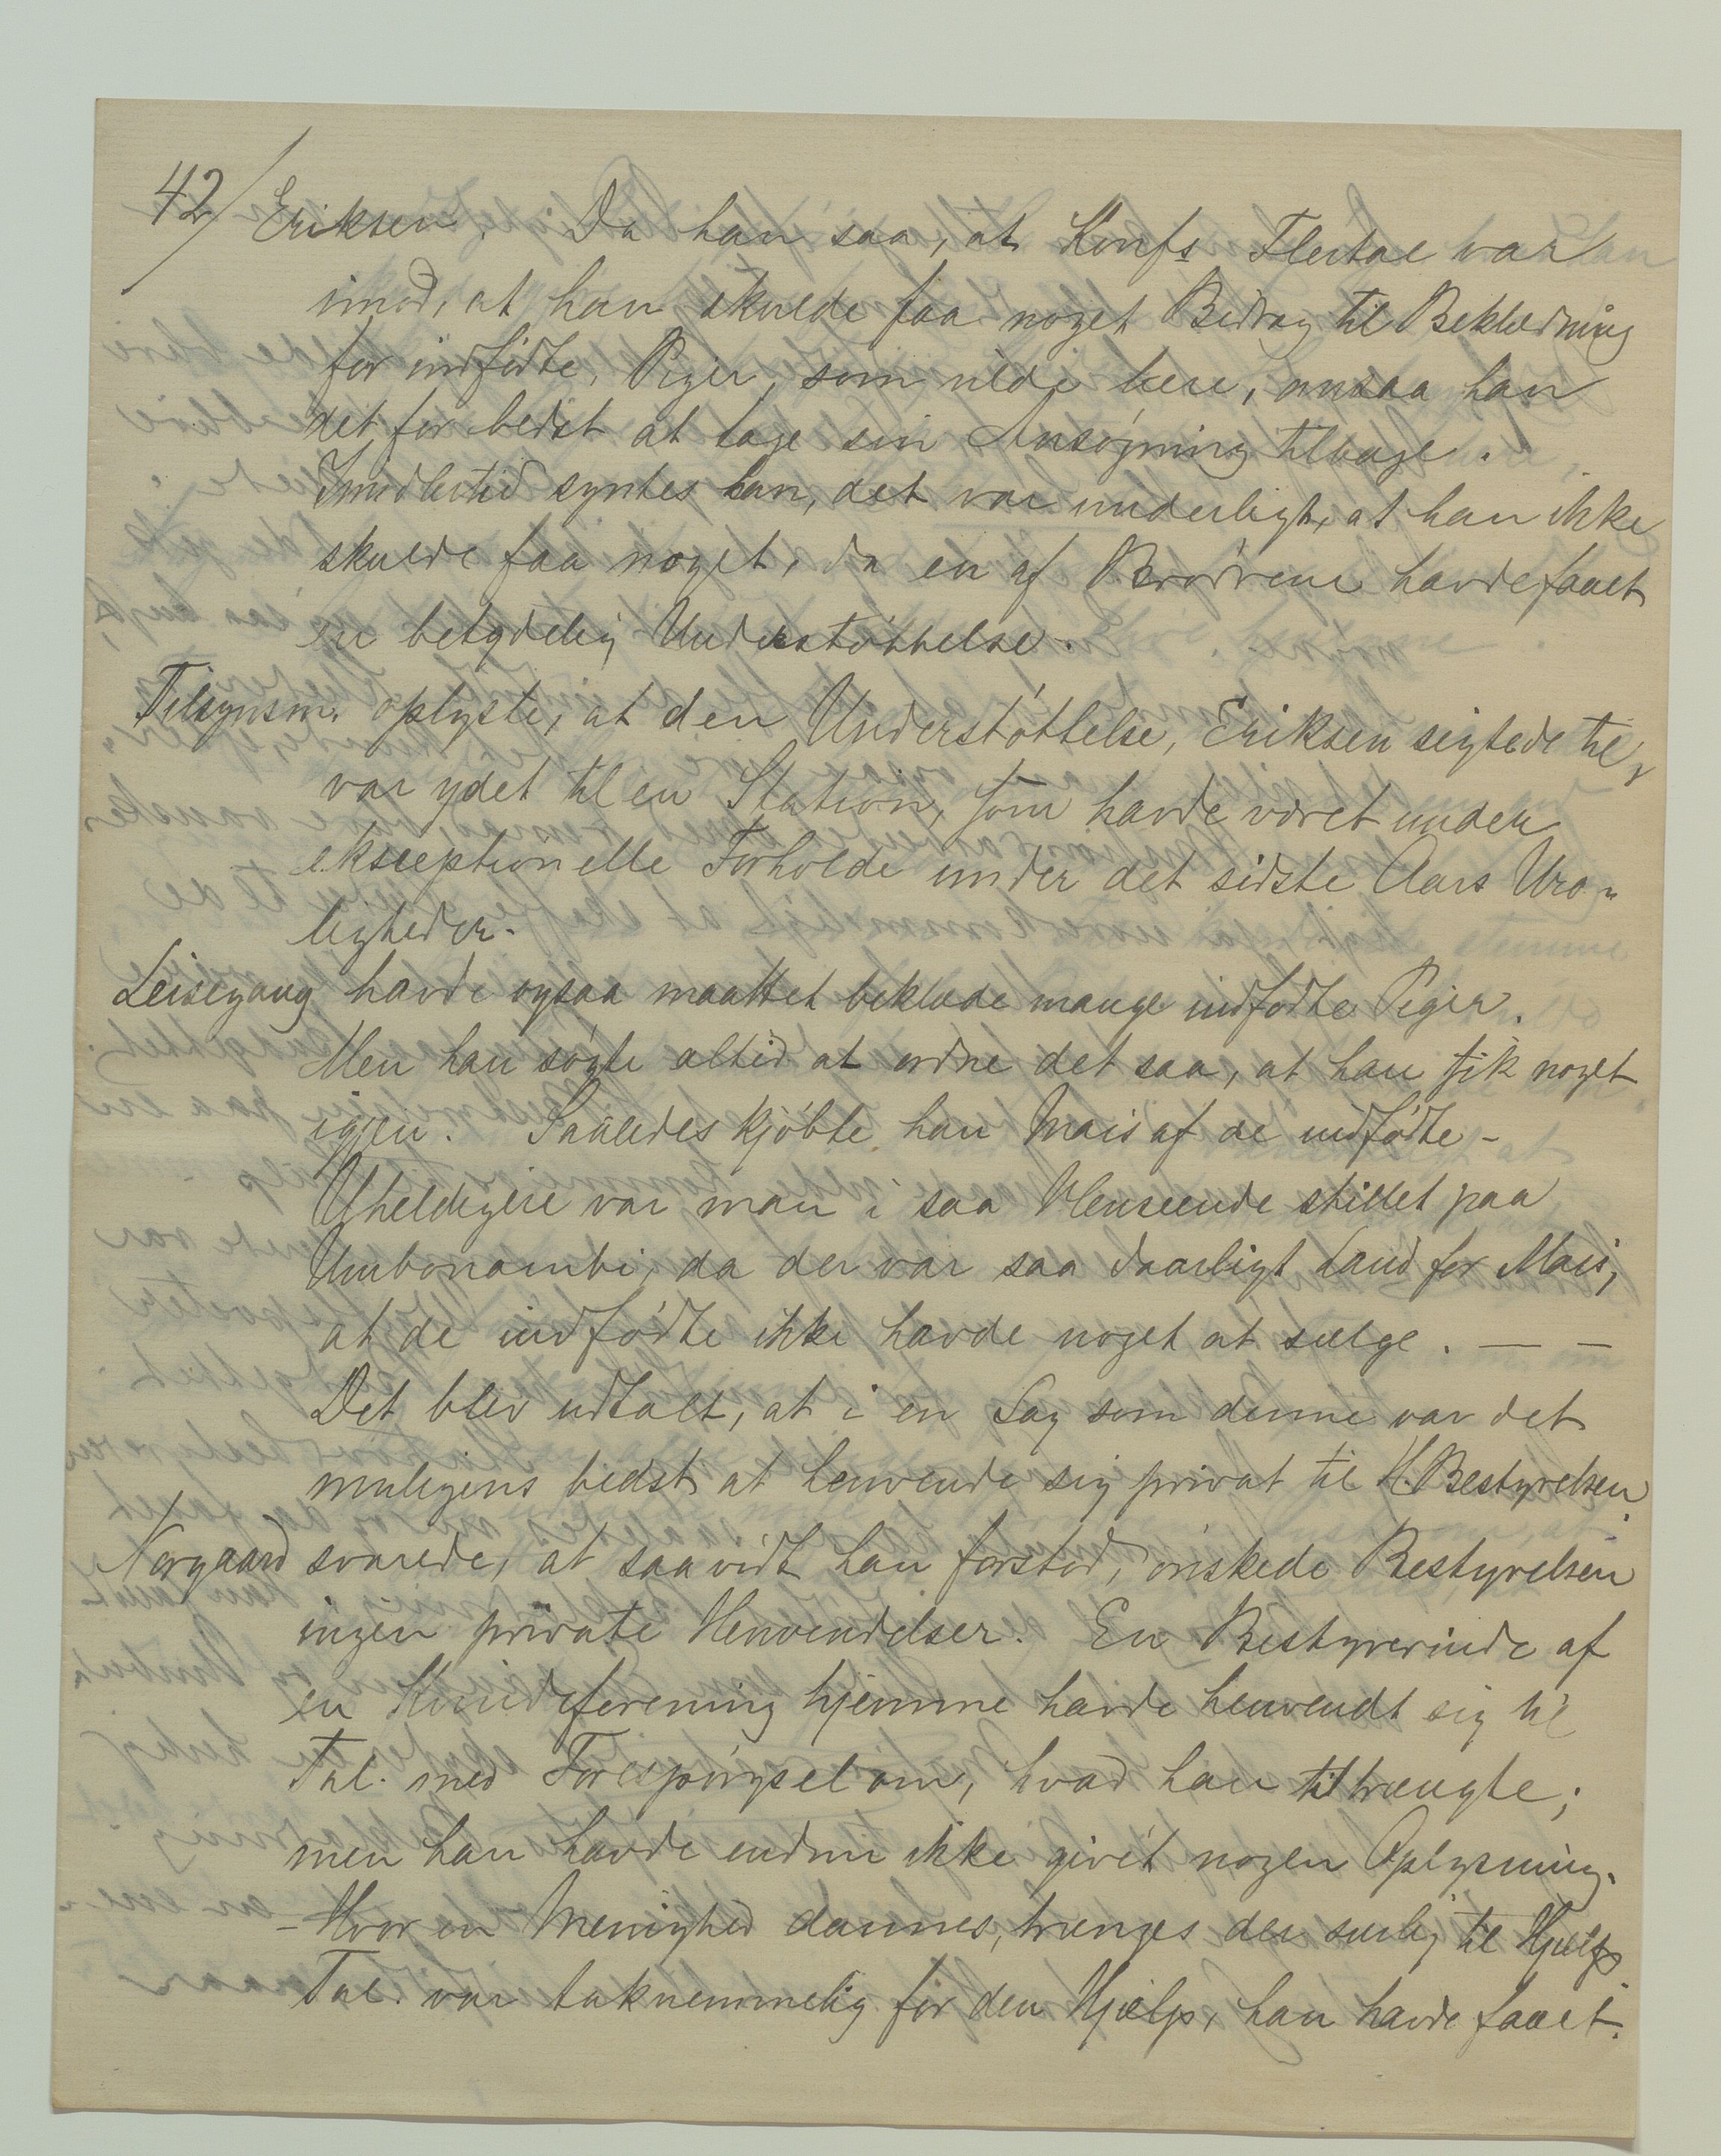 42/ Eriksen. Da han saa, at Konfs Flertal var
imod, at han skulde faa noget Bidrag til Beklædning
for indfødte Piger, som vilde lære, ansaa han
det for bedst at tage sin Ansøgning tilbage.
Imidlertid syntes han, det var underligt, at han ikke
skulde faa noget, da en af Brødrene havde faaet
en betydelig Understøttelse.
Tilsynsm. oplyste, at den Understøttelse, Eriksen sigtede til,
var ydet til en Station, som havde været under
eksceptionelle Forholde under det sidste Aars Uro-
ligheder.
Leisegang havde ogsaa maattet beklæde mange indfødte Piger.
Men han søgte altid at ordne det saa, at han fik noget
igjen. Saaledes kjøbte han Mais af de indfødte -
Uheldigere var man i saa Henseende stillet paa
Umbonambi, da der var saa daarligt Land for Mais,
at de indfødte ikke havde noget at sælge. — —
Det blev udtalt, at i en Sag som denne var det
muligens bedst at henvende sig privat til H. Bestyrelsen.
Norgaard svarede, at saavidt han forstod, ønskede Bestyrelsen
ingen private Henvendelser. En Bestyrerinde af
en Kvindeforening hjemme havde henvendt sig til
Tal. med Forespørgsel om, hvad han tiltrængte;
men han havde endnu ikke givet nogen Oplysning.
- Hvor en Menighed dannes, trænges der særlig til Hjælp
Tal. var taknemmelig for den Hjælp, han havde faaet.